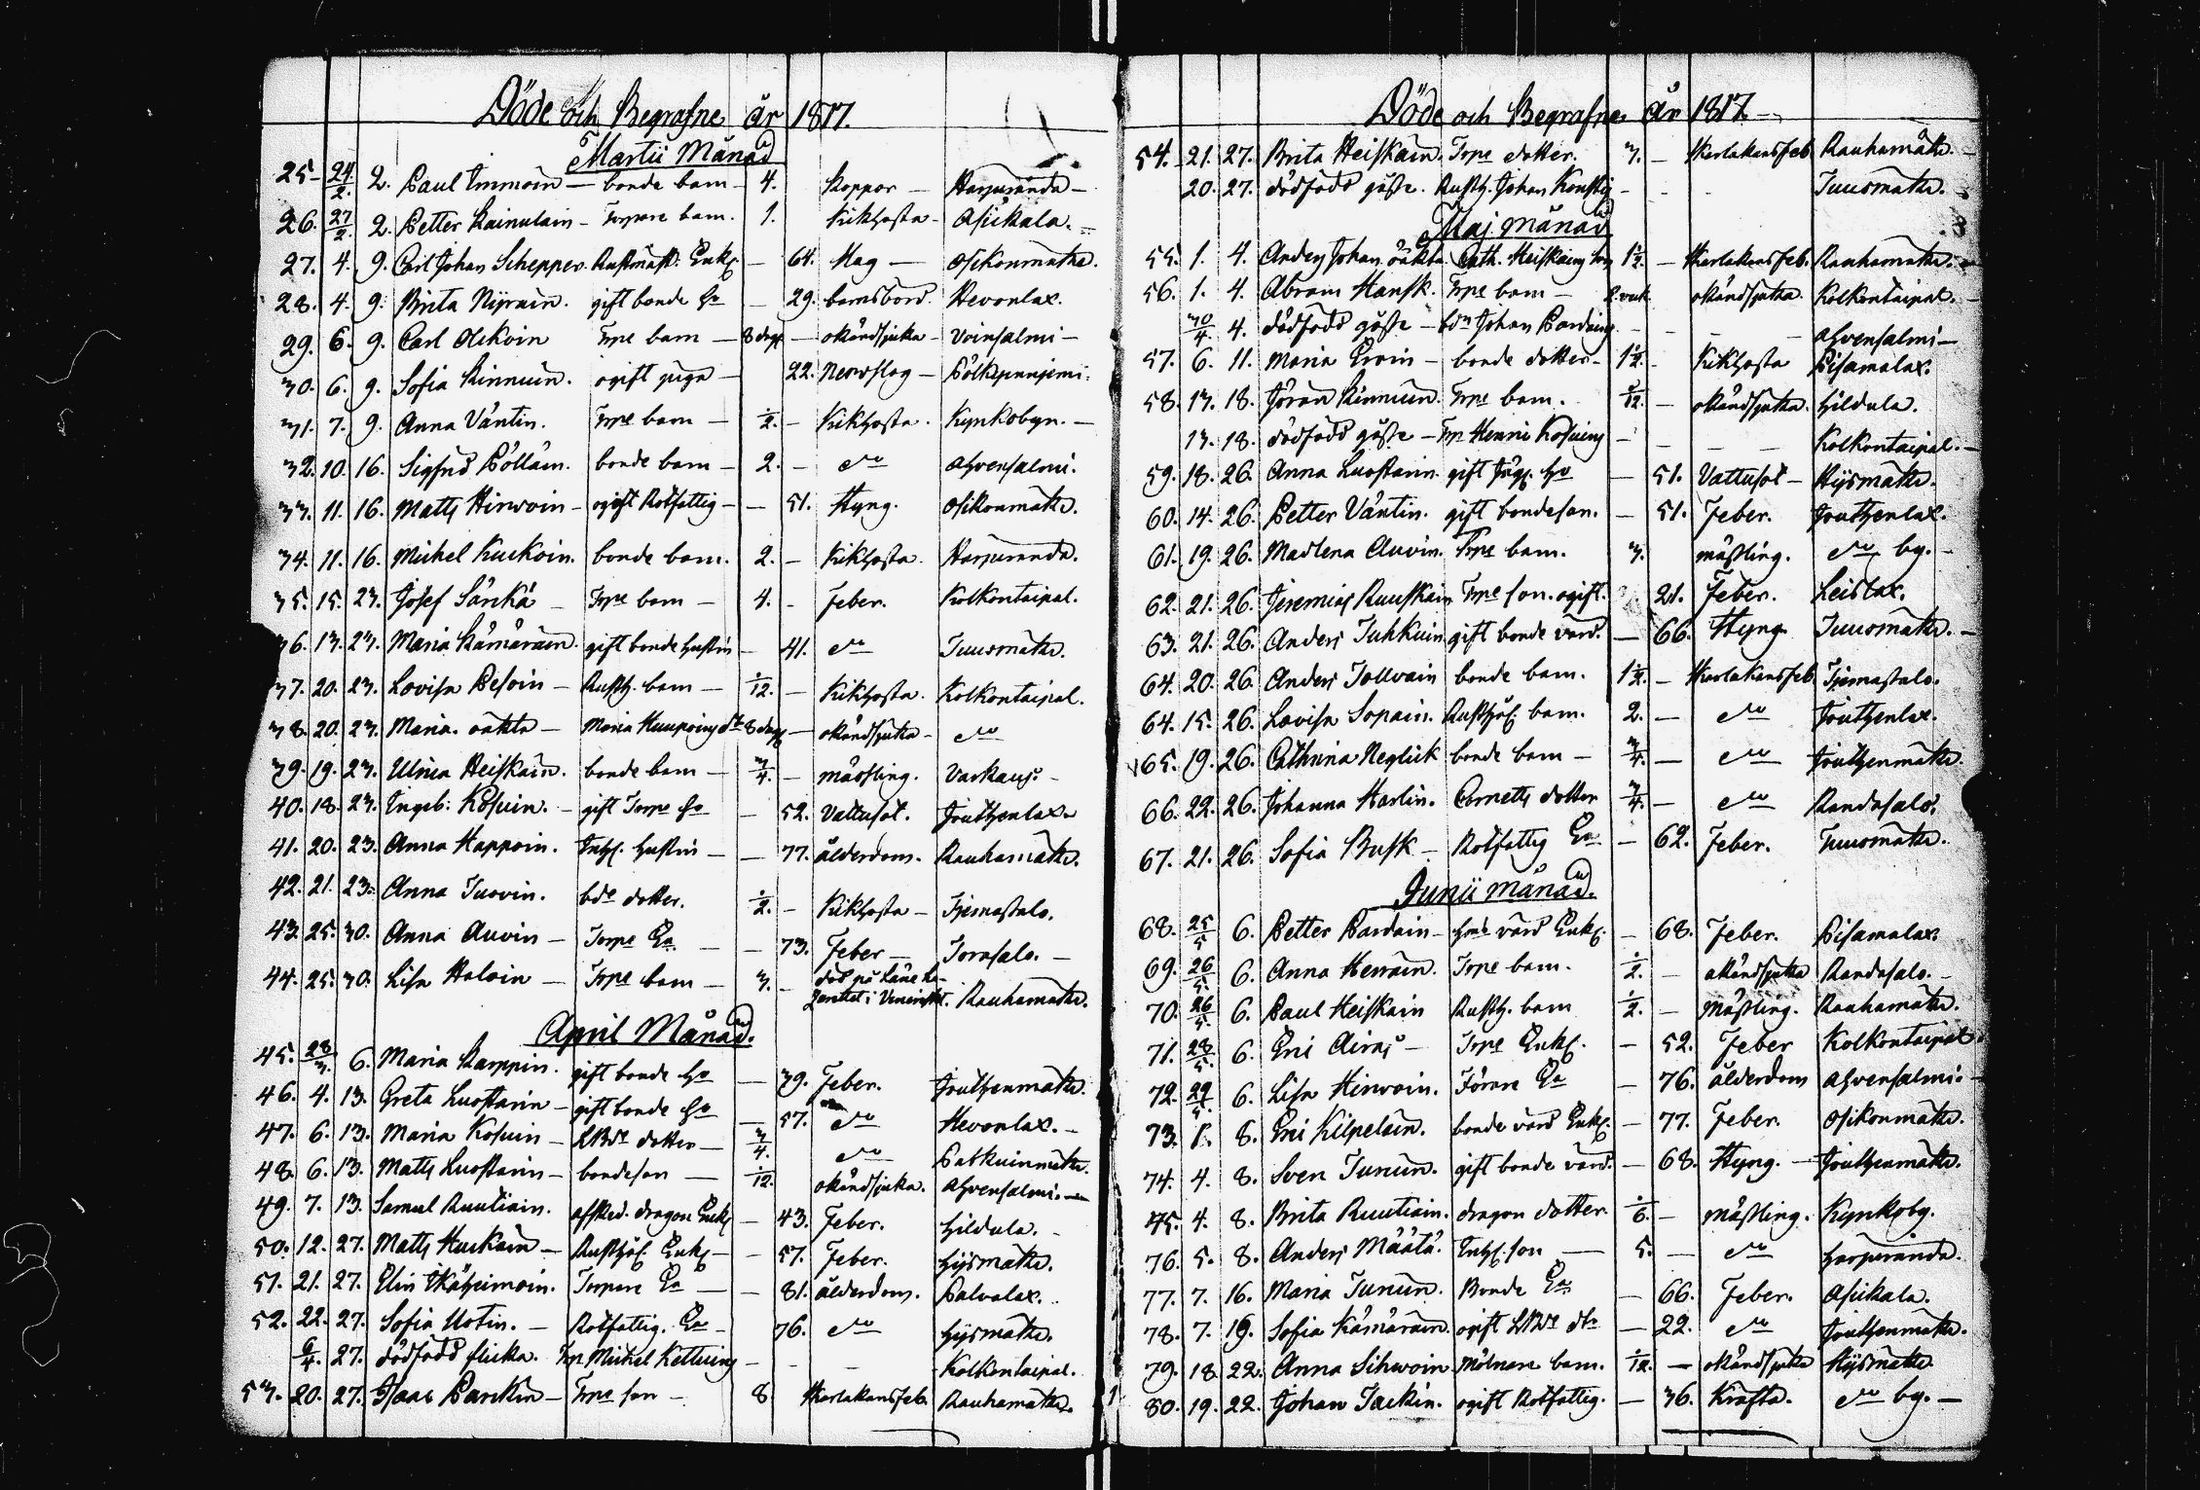 Döde och Begrafne år 1817.
Martii Månad
25. 24/2. 2. Paul Immoin — bonde barn — 4. Koppor — Harjuranda —
26. 27/2. 2. Petter Kainulain — Torpare barn. 1. Kikhosta — Asikala.
27. 4. 9. Carl Johan Schepper. Rustmäst. Enkl. — 64. Mag — Osikonmäkie.
28. 4. 9. Brita Nyrain. gift bonde Ho — 29. barnsbörd. Hevonlax.
29. 6. 9. Carl Olskoin Torpe barn — 8 dagr — okänd sjuka — Voinsalmi —
30. 6. 9. Sofia Kinnuin. ogift piga — 22. Nervslag —
31. 7. 9. Anna Väntin. Torpe barn — 1/2. — Kikhosta. Kynkobyn. —
32. 10. 16. Sigfrid Pölläin. bonde barn — 2. — do Ahvensalmi.
33. 11. 16. Matts Hirwoin — ogift Rotfattig — — 51. Styng. Osikonmäkie.
34. 11. 16. Michel Kuckoin. bonde barn. 2. — Kikhosta. Harjuranda.
35. 15. 23. Josef Särckä — Torpe barn — 4. — Feber. Kolkontaipal.
36. 13. 23. Maria Kämäräin. gift bonde hustru — 41. do Tuusmäkie.
37. 20. 23. Lovisa Pesoin — Rusth. barn — 1/12. — Kikhosta. Kolkontaipal.
38. 20. 23. Maria. oäkta — Maria Huupoins dr 8 dagr — okänd sjuka — do
39. 19. 23. Ulrica Heiskain. bonde barn — 3/4. — mässling. Varkaus. —
40. 18. 23. Ingeb. Kosuin. — gift Torpe Ho — 52. Vattusot. Jouhenlax.
41. 20. 23. Anna Happoin. Inhs. hustru — — 77. ålderdom. Rauhamäkie.
42. 21. 23. Anna Tuovin. bde dotter. 1/2. — Kikhosta — Tjemastalo.
43. 25. 30. Anna Auvin — Torpe Ea — — 73. Feber — Torasalo. —
44. 25. 30. Lisa Haloin — Torpe barn — 3. — död på Läne La-
zarettet i Rauhamäkie.
April Månad.
45. 28/3. 6. Maria Karppin. gift bonde Ho — 39. Feber. Jouhenmäkie.
46. 4. 13. Greta Luostarin — gift bonde Ho — 57. do Hevonlax. —
47. 6. 13. Maria Kosuin — LBde dotter — 3/4. do Patkuinmäkie.
48. 6. 13. Matts Luostarin — bondeson — 1/12. okänd sjuka. Ahvensalmi. —
49. 7. 13. Samuel Ruutiain. afsked. dragon Enkl — 43. Feber. Hildula. —
50. 12. 27. Matts Huckain — Rusthål. Enkl — — 57. Feber. Hysmäkie.
51. 21. 27. Elin Ikäheimoin. Torpare Ea — — 81. ålderdom. Palvalax.
52. 22. 27. Sofia Uotin. — Rotfattig. Ea — 76. do Hysmäkie.
6/4. 27. dödfödd flicka. Torp Michel Kettuins — — — Kolkontaipal.
53. 20. 27. Isaac Parckin — Torpe son — 8. Skarlakansfeb. Rauhamäkie.
Döde och Begrafne år 1817. —
54. 21. 27. Brita Heiskain. Torpe dotter. 3. — Skarlakansfeb. Rauhamäkie. —
20. 27. dödfödd gosse. Rusth. Johan — — — Tuusmäkie.
Maj månad
55. 1. 4. Anders Johan. oäkta. Cath. Heiskains 1 1/2. — Skarlakansfeb. Rauhamäkie.
56. 1. 4. Abram Hansk. Torpe barn — okänd sjuka. Kolkontaipal. —
30/4. 4. dödfödd gosse — bdn Johan Pardains. — — — Ahvensalmi —
57. 6. 11. Maria Ervoin — bonde dotter — 1 1/2. — Kikhosta Pisamalax.
58. 13. 18. Jöran Kinnuin. Torpe barn. 5/12. — okänd sjuka. Hildula.
13. 18. dödfödd gosse — Torp Henric Kosuins — — — Kolkontaipal. —
59. 18. 26. Anna Luostarin. gift Inhs. Ho — 51. Vattusot — Hysmäkie.
60. 14. 26. Petter Väntin. gift bondeson. — 51. Feber. Jouhenlax.
61. 19. 26. Madlena Auvin. Torpe barn. 3. mässling. do by. —
62. 21. 26. Jeremias Ruuskain Torpe son. ogift. 21. Feber. Leislax.
63. 21. 26. Anders Tuhkuin gift bonde värd. — 66. Styng. Tuusmäkie. —
64. 20. 26. Anders Tollvain bonde barn. 1 1/2. — Skarlakansfeb. Tjemastalo.
64. 15. 26. Lovisa Sopain. Rusthål. barn. 2. — do Jouhenlax.
65. 19. 26. Cathrina Neglick bonde barn — 3/4. — do Jouhenmäkie.
66. 22. 26. Johanna Harlin. Cornetts dotter 3/4. — do Randasalo.
67. 21. 26. Sofia Busk — Rotfattig Ea — 62. Feber. Tuusmäkie.
Junii månad.
68. 25/5 6. Petter Pardain — värd Enkl. — 68. Feber. Pisamalax.
69. 26/5 6. Anna Herrain. Torpe barn. 1/2. — okänd sjuka Randasalo. —
70. 26/5. 6. Paul Heiskain Rusth. barn 1/2. — Mässling. Rauhamäkie.
71. 28/5. 6. Eric Airas — Torpe Enkl. — 52. Feber Kolkontaipal.
72. 29/5. 6. Lisa Hirwoin. Förare Ea — 76. ålderdom Ahvensalmi. —
73. 1. 8. Eric Kilpeläin. bonde värd Enkl. — 77. Feber. Osikonmäkie.
74. 4. 8. Sven Tunuin. gift bonde värd. — 68. Styng. — Jouhenmäkie.
75. 4. 8. Brita Ruutiain. dragon dotter. 1/6. — Mässling. Kynkoby.
76. 5. 8. Anders Määtä. Inhs. son — 5. — do Harjuranda.
77. 7. 16. Maria Tunuin. Bonde Ea — 66. Feber. Asikala.
78. 7. 19. Sofia Kämäräin. ogift LBde dtr — 22. do Jouhenmäkie.
79. 18. 22. Anna Sihwoin Mölnare barn. 1/12. — okänd sjuka Hysmäkie
80. 19. 22. Johan Tackin. ogift Rotfattig. — 36. Kräfta. do by. —